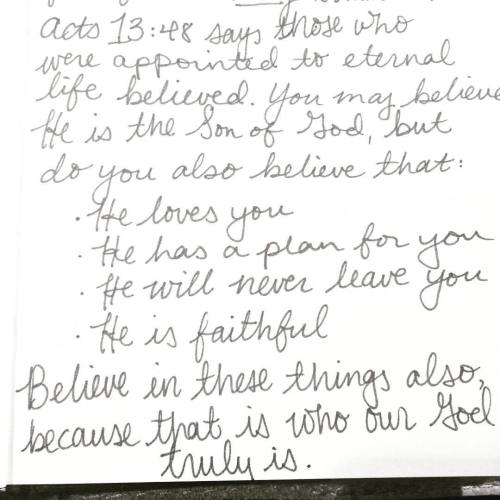 Acts 13:48 says those who
were appointed to eternal
life believed. You may believe
He is the Son of God, but
do you also believe that:
· He loves you
· He has a plan for you
· He will never leave you
· He is faithful
Believe in these things also,
because that is who our God
truly is.